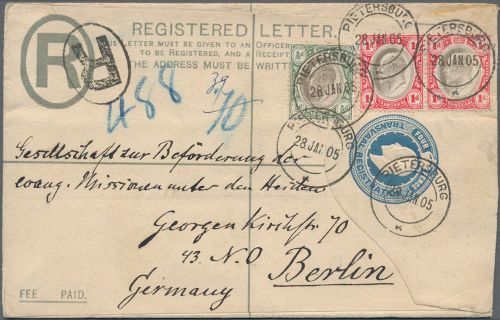 REGISTERED LETTER.
THIS LETTER MUST BE GIVEN TO AN OFFICER
TO BE REGISTERED, AND A RECEIPT
THE ADDRESS MUST BE WRITTEN
R
R
488
39
70
PIETERSBURG
28 JAN 05
PIETERSBURG
28 JAN 05
PIETERSBURG
28 JAN 05
PIETERSBURG
28 JAN 05
PIETERSBURG
JAN 05
TRANSVAAL REGISTRATION FOUR
Gesellschaft zur Beförderung der
evang. Missionen unter den Heiden
Georgen Kirchstr 70
43. N.O Berlin
Germany
FEE PAID.